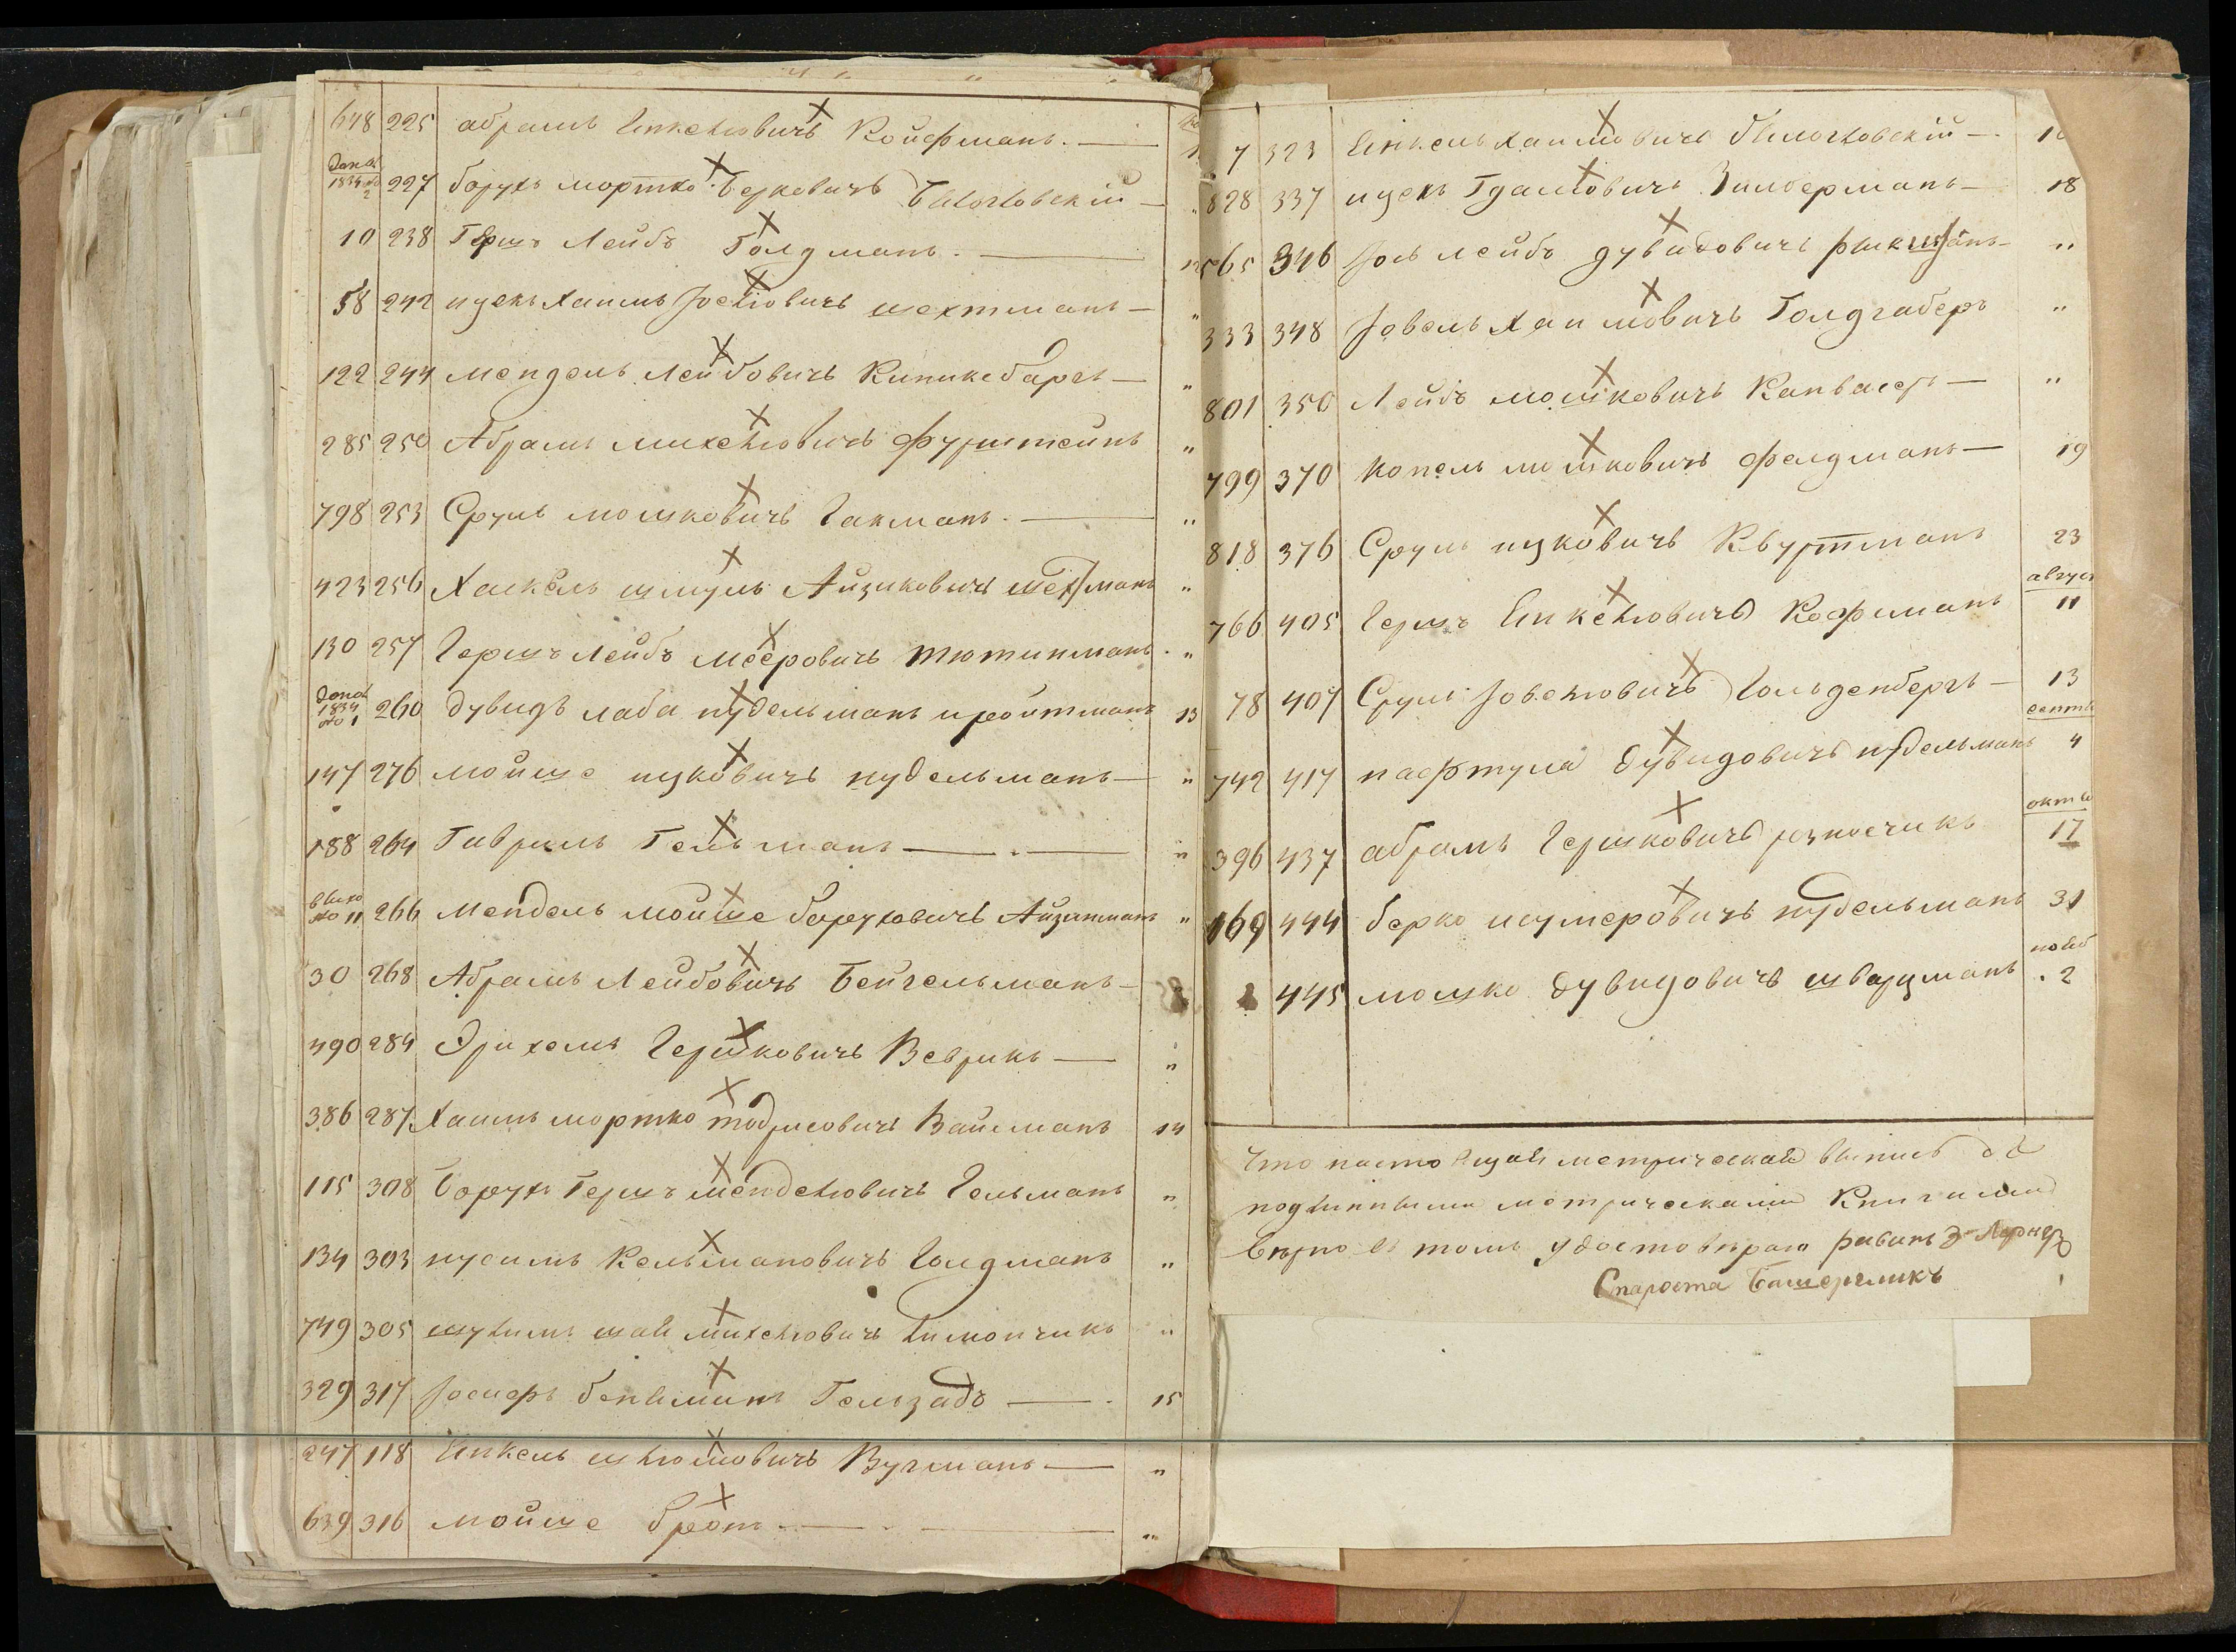 648 225 абрамъ Янкелювичъ Койфманъ.
допол 1834 № 2 227 борухъ мортко Берковичъ Бялолювскій
10 238 Гершъ Лейбъ Голдманъ.
58 242 ицекъ Хаимъ Іоселювичъ шехтманъ
122 244 мендель Лейбовичъ
285 250 Абрамъ михелювичъ фурштейнъ "
798 253 Сруль мошковичъ Гакманъ. "
423 256 Хаскель шмуль Айзиковичъ шехтманъ "
130 257 Гершъ Лейбъ Мееровичъ тютинманъ "
допол 1834 № 1 260 дувидъ лаба нудельманъ и ройтманъ 13
147 276 мойше ицковичъ нудельманъ "
188 264 Гаврилъ Гельманъ "
№ 11 266 Мендель мойше боруховичъ Айзинманъ "
30 268 Абрамъ Лейбовичъ Бейгельманъ
490 284 Эрихемъ Гершковичъ Веврикъ "
386 287 Хаимъ мортко тодрисовичъ Вайсманъ 14
115 308 борухъ Гершъ мендельовичъ Гельманъ "
134 303 нусимъ Кельмановичъ Голдманъ "
749 305 шулимъ шая михелювичъ Лимончикъ "
329 317 Іосифъ беняминъ Гельзадъ 15
247 118 Янкель шлюмовичъ Вугманъ "
639 316 мойше бротъ "
7 323 Янкель Хаимовичъ бялолювскій
828 337 ицекъ Гдалювичъ Зилберманъ 18
565 346 Іось лейбъ дувидовичъ "
333 348 Іовель Хаимовичъ Голдгаберъ "
801 350 Лейбъ мошковичъ Канвасеръ "
799 370 копель мошковичъ фелдманъ 19
818 376 Сруль ицковичъ Квуртманъ 23
авгус
766 405 Гершъ Янкелювичъ Кофманъ 11
78 407 Сруль Іовелювичъ Гольденбергъ 13
септя
742 417 нафтула дувидовичъ нудельманъ 4
октя
396 437 абрамъ Гершковичъ розносчикъ 17
169 444 берко шумеровичъ нудельманъ 31
нояб
445 мошко дувидовичъ шварцманъ 2
Что настоящая метрическая выпись съ
подлинными метрическими Книгами
вѣрно въ томъ удостовѣраю равинъ Э Лернеръ
Староста Башергликъ